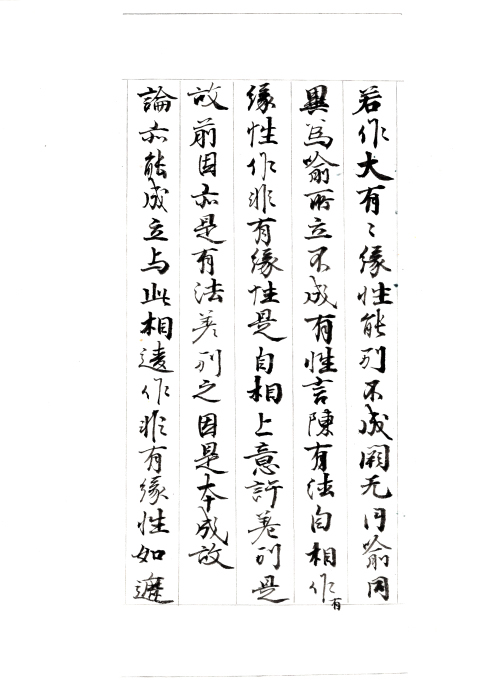 若作大有〻緣性能别不成闕无同喻同
異爲喻所立不成有性言陳有法自相作有
緣性作非有緣性是自相上意許差别是
故前因亦是有法差别之因是本成故
論亦能成立与此相違作非有緣性如遮